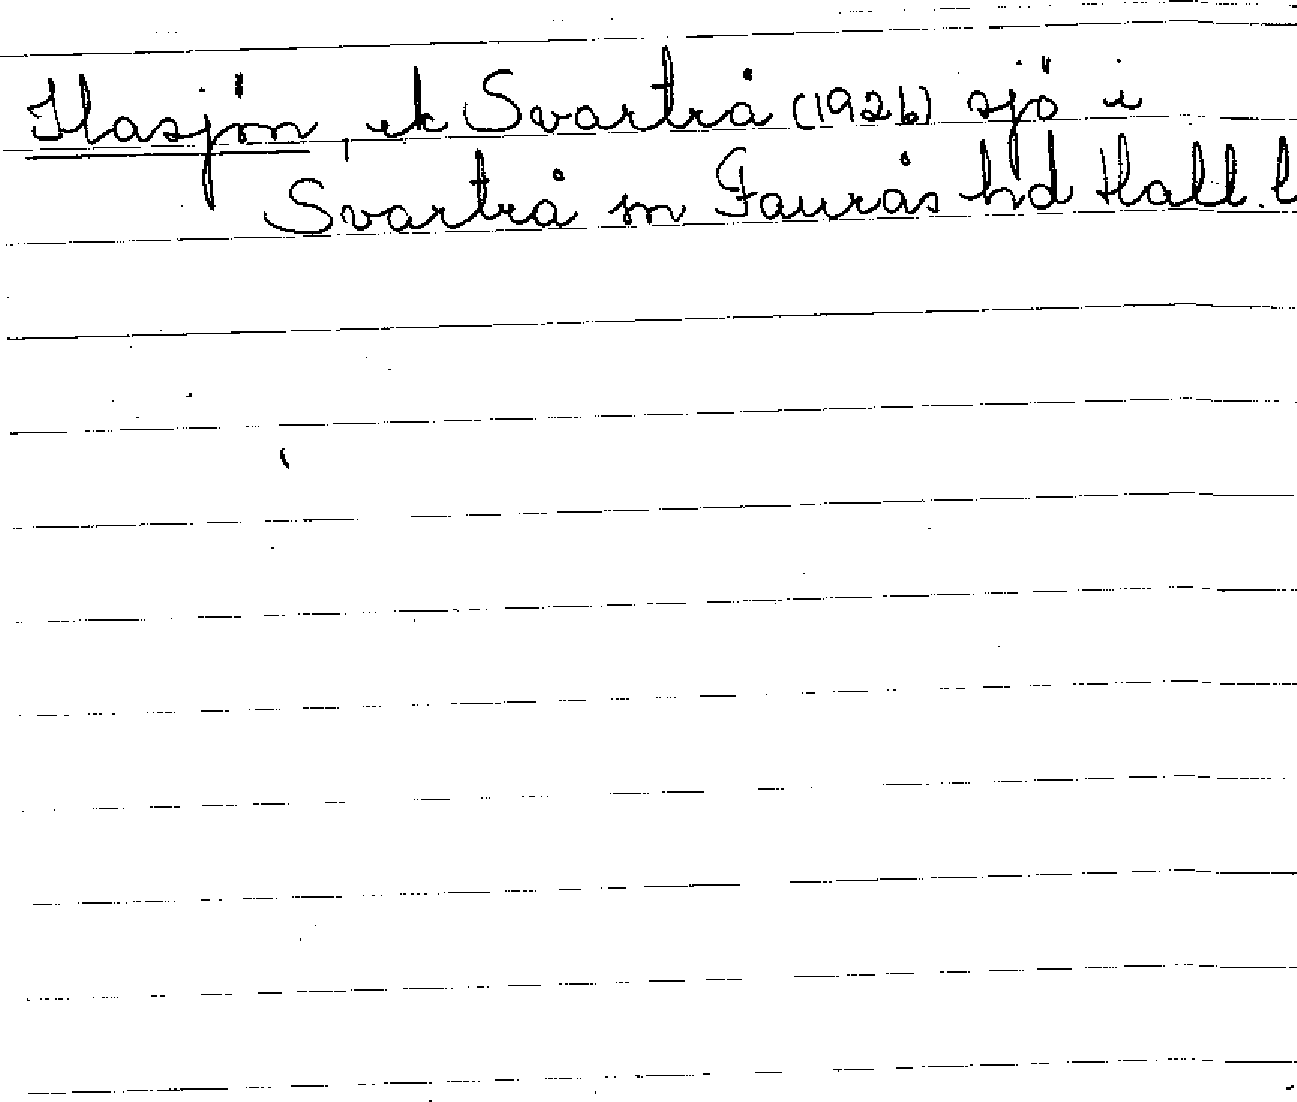 Ilasjön, ek Svartrå (1926) sjö i
Svartrå sn Faurås hd Hall. l